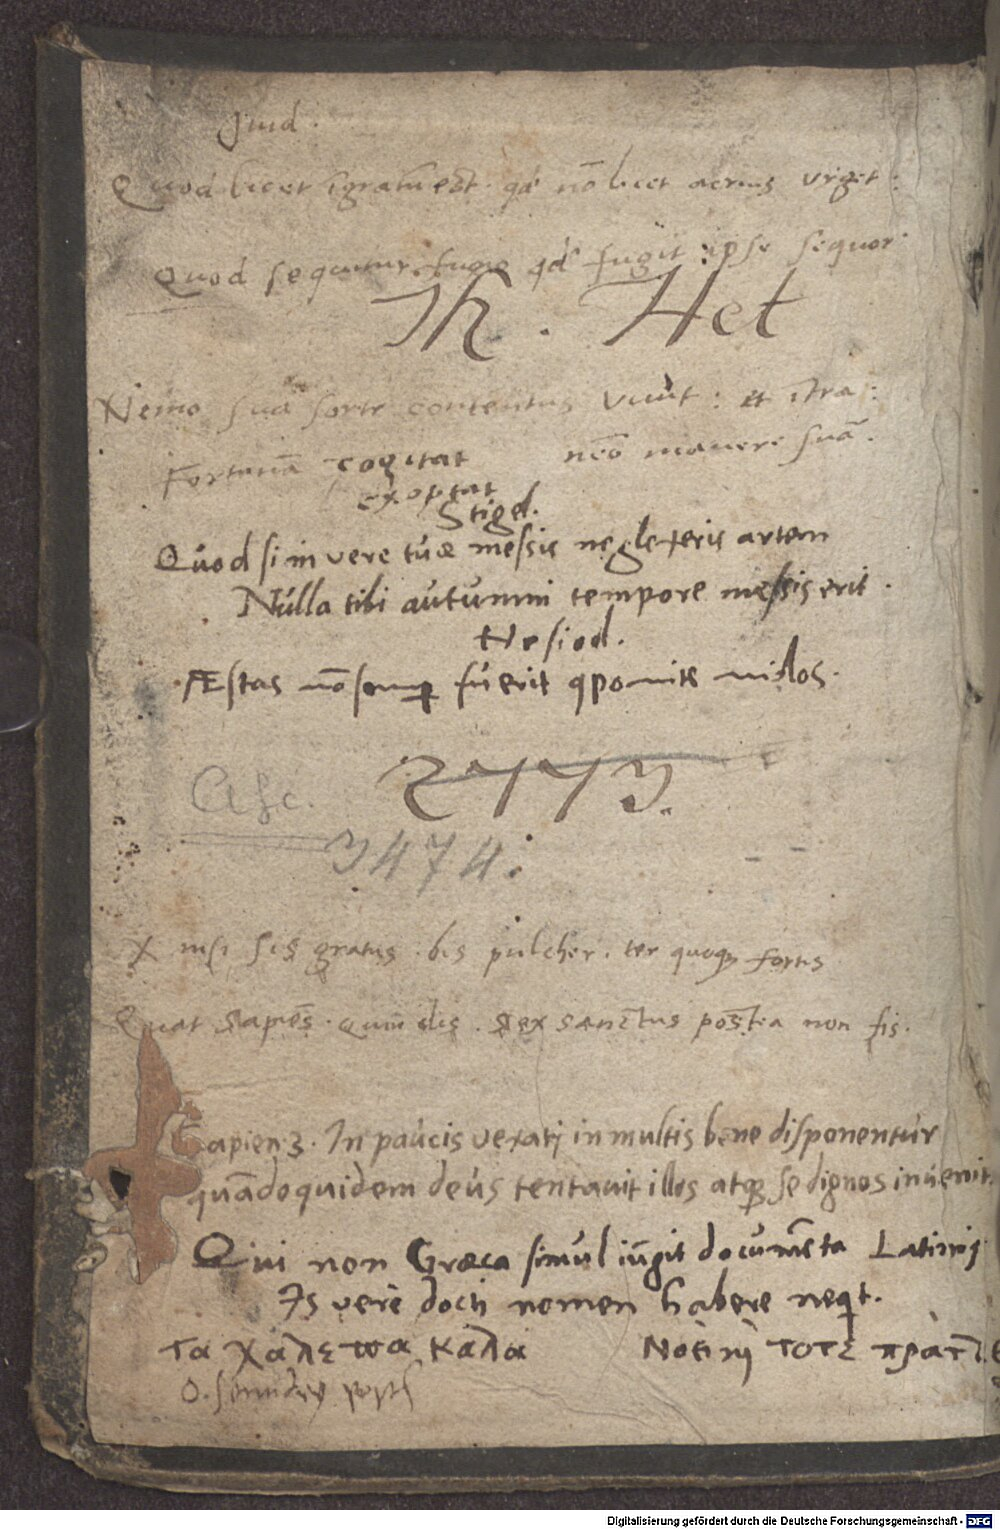 Quod licet īgratū est. qd nō licet acrius vrget.
Quod sequitur fugio qd fugit ipse sequor.
Th. Het
Nemo sua sorte contentus viuit: et
Fortunā cogitat manere suā.
exoptat
Stigel.
Quod si in vere tuæ messis neglexeris artem
Nulla tibi autumni tempore messis erit.
Hesiod.
Æstas nō semp fuerit nidos.
2773.
Asc.
3474.
nisi sis gratus. bis pulcher. ter quoq fortis
Quat sapiēs. sex sanctus postea non fis.
Sapien 3. In paucis vexati in multis bene disponentur
quādoquidem deus tentauit illos atq se dignos inuenit.
Qui non Græca simul iūgit documēta Latinis
Is vere docti nomen habere neqt.
τα χαλεπα καλα τοτε
Digitalisierung gefördert durch die Deutsche Forschungsgemeinschaft - DFG